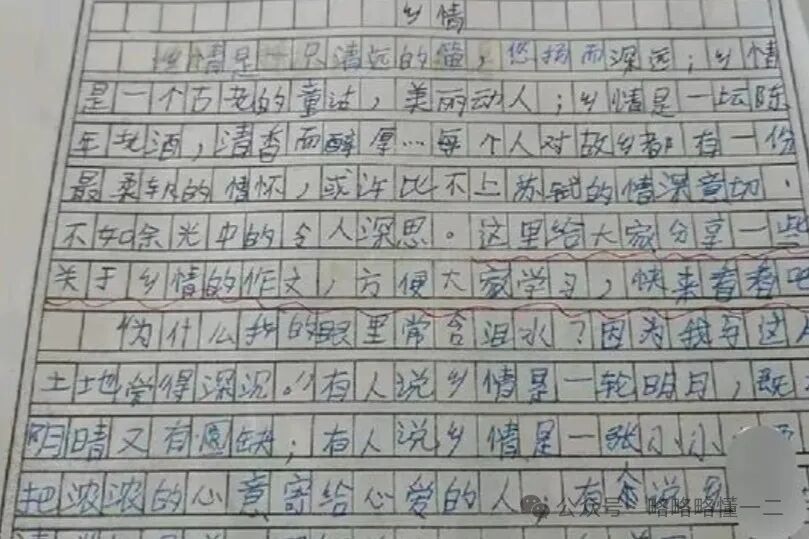 乡情
乡情是一只清远的笛，悠扬而深远；乡情
是一个古老的童话，美丽动人；乡情是一坛陈
年老酒，清香而醇厚…每个人对故乡都有一份
最柔软的情怀，或许比不上苏轼的情深意切．
不如余光中的令人深思。这里给大家分享一些
关于乡情的作文，方便大家学习，快来看看吧
“为什么我的眼里常含泪水？因为我与这
土地爱得深沉。”有人说乡情是一轮明月，既
阴晴又有圆缺；有人说乡情是一张小小
把浓浓的心意寄给心爱的人；有人说
公众号 略略略懂一二